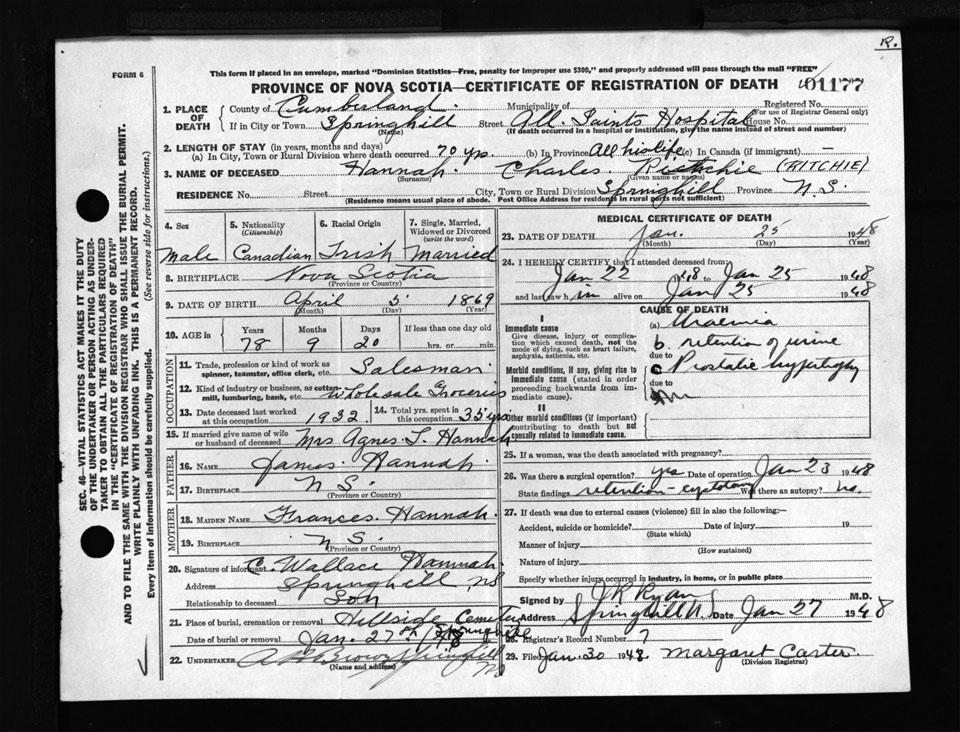 R.
FORM 6
This form if placed in an envelope, marked "Dominion Statistics—Free, penalty for improper use $300," and properly addressed will pass through the mail "FREE"
PROVINCE OF NOVA SCOTIA—CERTIFICATE OF REGISTRATION OF DEATH
01177
SEC. 46—VITAL STATISTICS ACT MAKES IT THE DUTY
OF THE UNDERTAKER OR PERSON ACTING AS UNDER-
TAKER TO OBTAIN ALL THE PARTICULARS REQUIRED
IN THE "CERTIFICATE OF REGISTRATION OF DEATH"
AND TO FILE THE SAME WITH THE DIVISION REGISTRAR WHO SHALL ISSUE THE BURIAL PERMIT.
WRITE PLAINLY WITH UNFADING INK. THIS IS A PERMANENT RECORD.
Every item of information should be carefully supplied. (See reverse side for instructions.)
1. PLACE OF DEATH
County of Cumberland. Municipality of Registered No.
(For use of Registrar General only)
If in City or Town Springhill Street All Saints Hospital House No.
(Name) (If death occurred in a hospital or institution, give the name instead of street and number)
2. LENGTH OF STAY (in years, months and days)
(a) In City, Town or Rural Division where death occurred 70 yrs. (b) In Province All his life (c) In Canada (if immigrant) —
3. NAME OF DECEASED Hannah. Charles. Ritchie (RITCHIE)
(Surname) (Given name or names)
RESIDENCE No. Street City, Town or Rural Division Springhill Province N.S.
(Residence means usual place of abode. Post Office Address for Residents in rural parts not sufficient)
4. Sex 5. Nationality (Citizenship) 6. Racial Origin 7. Single, Married, Widowed or Divorced (write the word)
Male Canadian Irish Married
8. BIRTHPLACE Nova Scotia
(Province or Country)
9. DATE OF BIRTH April 5 1869
(Month) (Day) (Year)
10. AGE in Years Months Days If less than one day old
78 9 20 hrs. or min.
OCCUPATION
11. Trade, profession or kind of work as spinner, teamster, office clerk, etc. Salesman
12. Kind of industry or business, as cotton mill, lumbering, bank, etc. Wholesale Groceries
13. Date deceased last worked at this occupation 1932. 14. Total yrs. spent in this occupation 35 yrs.
15. If married give name of wife or husband of deceased Mrs Agnes T. Hannah
FATHER
16. NAME James Hannah.
17. BIRTHPLACE N S.
(Province or Country)
MOTHER
18. MAIDEN NAME Frances. Hannah.
19. BIRTHPLACE N S.
(Province or Country)
20. Signature of informant C. Wallace Hannah
Address Springhill, NS
Relationship to deceased Son
21. Place of burial, cremation or removal Hillside Cemetery
Date of burial or removal Jan. 27
22. UNDERTAKER Brown Springhill NS
(Name and address)
MEDICAL CERTIFICATE OF DEATH
23. DATE OF DEATH Jan. 25 1948
(Month) (Day) (Year)
24. I HEREBY CERTIFY that I attended deceased from:
Jan 22 48 to Jan 25 1948
and last saw him alive on Jan 25 1948
CAUSE OF DEATH
I
Immediate cause
Give disease, injury or complication which caused death, not the mode of dying, such as heart failure, asphyxia, asthenia, etc.
(a) Uraemia
b. retention of urine
due to
Morbid conditions, if any, giving rise to immediate cause (stated in order proceeding backwards from immediate cause).
c Prostatic hypertrophy
due to
II
Other morbid conditions (if important) contributing to death but not causally related to immediate cause.
25. If a woman, was the death associated with pregnancy?
26. Was there a surgical operation? yes Date of operation Jan 23 1948
State findings retention - Was there an autopsy? no.
27. If death was due to external causes (violence) fill in also the following:—
Accident, suicide or homicide? Date of injury 19
(State which)
Manner of injury
(How sustained)
Nature of injury
Specify whether injury occurred in industry, in home, or in public place
Signed by J R Ryan M.D.
Address Springhill N.S. Date Jan 27 1948
28. Registrar's Record Number 7
29. Filed Jan. 30 1948 Margaret Carter.
(Division Registrar)